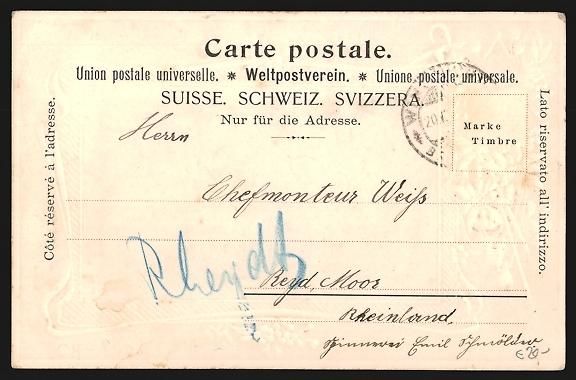 Carte postale.
Union postale universelle. * Weltpostverein. * Unione postale universale.
SUISSE. SCHWEIZ. SVIZZERA.
Nur für die Adresse.
Côté réservé à l'adresse.
Lato riservato all' indirizzo.
Marke
Timbre
Herrn
Chefmonteur Weiss
Rheydt
Reyd, Moor
Rheinland.
Spinnerei Emil Schmölder
€ 20.-